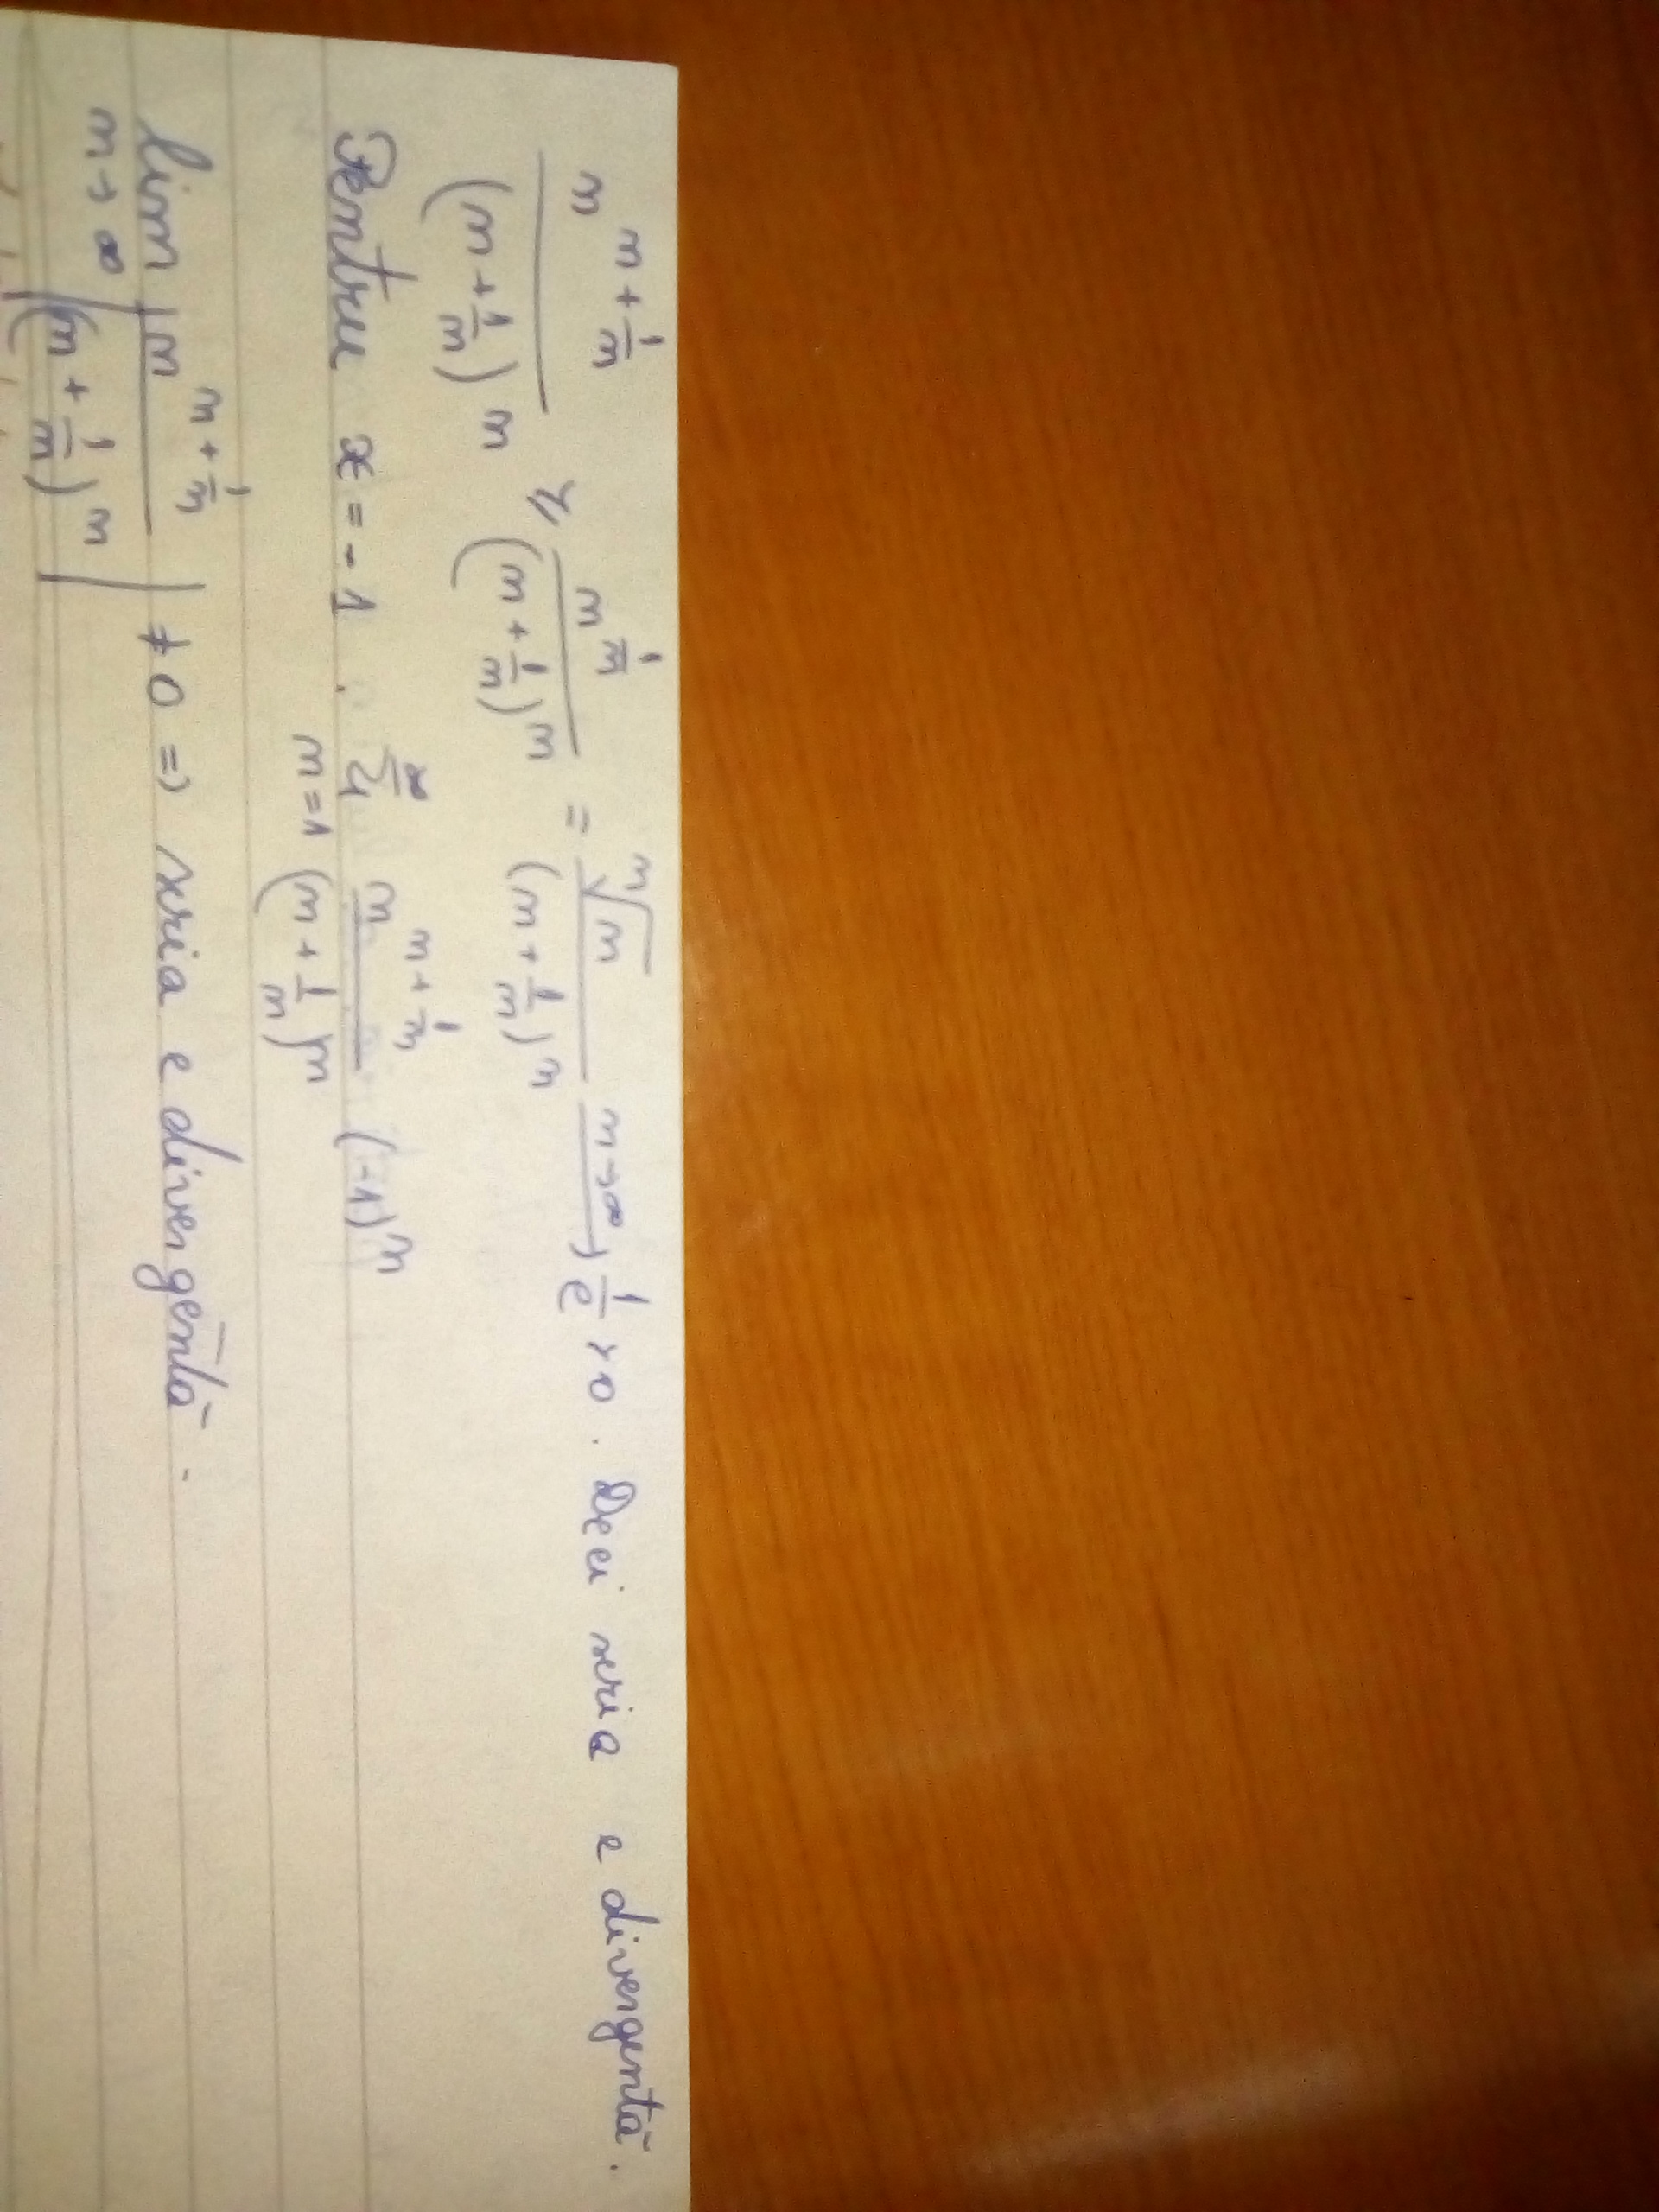 n^(n+1/n) / (n+1/n)^n ≥ n^(1/n) / (n+1/n)^n = ⁿ√n / (n+1/n)^n —n→∞→ 1/e > 0. Deci seria e divergentă.
Pentru x = -1. ∑_(n=1)^∞ n^(n+1/n) / (n+1/n)^n (-1)^n
lim_(n→∞) | n^(n+1/n) / (n+1/n)^n | ≠ 0 => seria e divergentă.